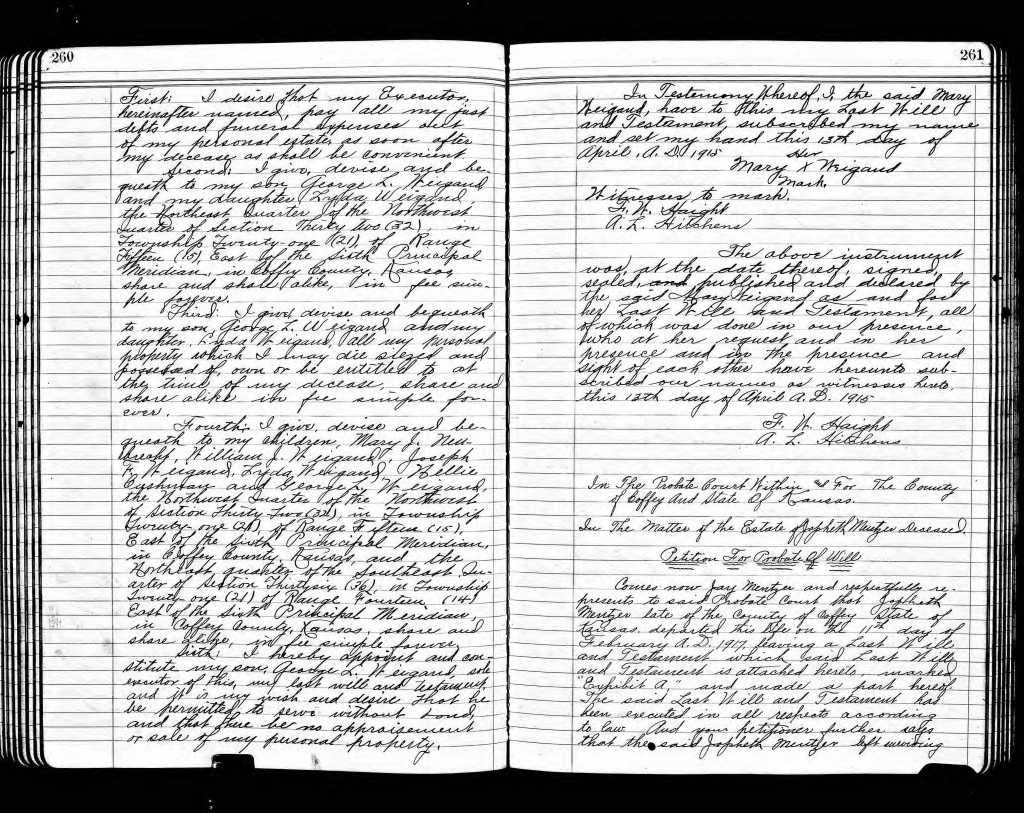 260
First: I desire that my Executor,
hereinafter named, pay all my just
debts and funeral expenses out
of my personal estate as soon after
my decease as shall be convenient
Second: I give, devise and be-
queath to my son George L. Weigand
and my daughter Lyda Weigand,
the Northeast Quarter of the Northwest
Quarter of Section Thirty Two (32), in
Township Twenty-one (21), of Range
Fifteen (15), East of the Sixth Principal
Meridian, in Coffey County, Kansas,
share and share alike, in fee sim-
ple forever.
Third: I give, devise and bequeath
to my son, George L. Weigand and my
daughter, Lyda Weigand, all my personal
property which I may die siezed and
possessed of, own or be entitled to at
the time of my decease, share and
share alike in fee simple for-
ever.
Fourth: I give, devise and be-
queath to my children, Mary J.
William J. Weigand, Joseph
F. Weigand, Lyda Weigand, Nellie
Cushman and George L. Weigand,
the Northwest Quarter of the Northwest
of Section Thirty Two (32), in Township
Twenty-one (21), of Range Fifteen (15),
East of the Sixth Principal Meridian,
in Coffey County, Kansas, and the
Northeast quarter of the Southeast Qu-
arter of Section Thirtysix (36), in Township
Twenty-one (21) of Range Fourteen (14)
East of the Sixth Principal Meridian,
in Coffey County, Kansas, share and
share alike, in fee simple forever
Sixth: I hereby appoint and con-
stitute my son, George L. Weigand, sole
executor of this, my last will and testament,
and it is my wish and desire that he
be permitted to serve without bond,
and that there be no appraisement
or sale of my personal property.
261
In Testimony Whereof, I, the said Mary
Weigand, have to this my Last Will
and Testament, subscribed my name
and set my hand this 13th day of
April, A.D. 1915
Her
Mary X Weigand
Mark.
Witnesses to mark.
F. W. Haight
A. L. Hitchens
The above instrument
was, at the date thereof, signed,
sealed, and published and declared by
the said Mary Weigand as and for
her Last Will and Testament, all
of which was done in our presence,
who at her request and in her
presence and in the presence and
sight of each other have hereunto sub-
scribed our names as witnesses hereto,
this 13th day of April A.D. 1915
F. W. Haight
A. L. Hitchens
In The Probate Court Within and For The County
of Coffey And State Of Kansas.
In The Matter of the Estate of Japheth Mentzer Deseased.
Petition For Probate Of Will
Comes now Jay Mentzer and respectfully re-
presents to said Probate Court that Japheth
Mentzer late of the County of Coffey State of
Kansas, departed this life on the 11th day of
February A.D. 1917, leaving a Last Will
and Testament which said Last Will
and Testament is attached hereto, marked
"Exhibit A," and made a part hereof.
The said Last Will and Testament had
been executed in all respects according
to law. And your petitioner further says
that the said Japheth Mentzer left surviving